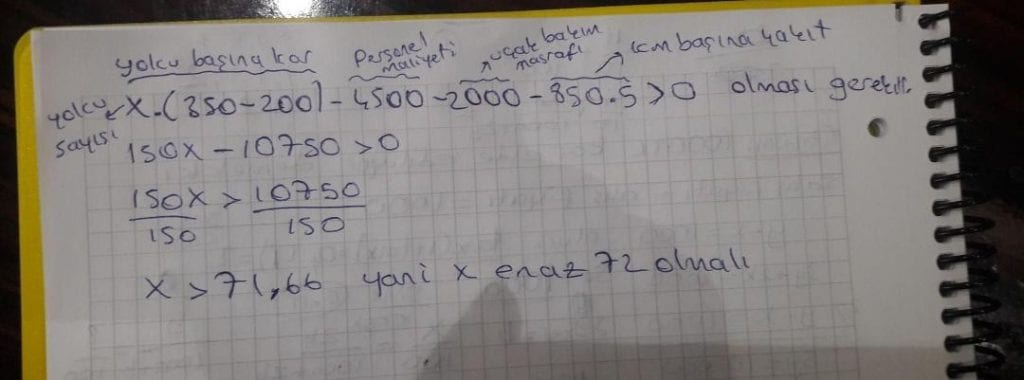 yolcu başına kar Personel maliyeti uçak bakım masrafı km başına yakıt
yolcu sayısı X.(350-200)-4500-2000-850.5>0 olması gerekir.
150x-10750>0
150x > 10750
150 150
x > 71,66 yani x en az 72 olmalı